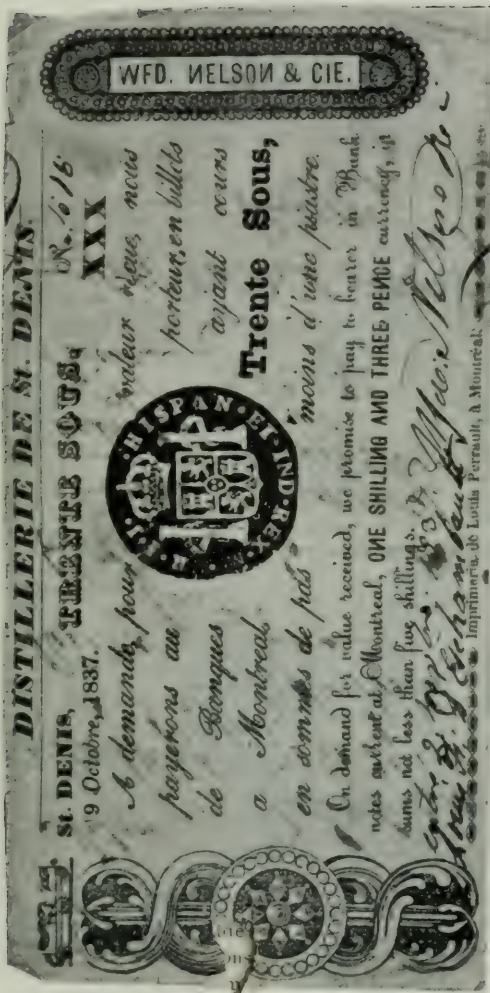 DISTILLERIE DE St. DENIS.
St. DENIS, TRENTE SOUS, No.
9 Octobre, 1837. XXX
A demande, pour valeur reçue, nous
payerons au porteur, en billets
de Banques ayant cours
a Montreal, Trente Sous,
en sommes de pas moins d'une piastre.
On demand for value received, we promise to pay to bearer in Bank
notes current at Montreal, ONE SHILLING AND THREE PENCE currency, in
sums not less than five shillings.
Wfd. Nelson
Imprimerie de Louis Perrault, à Montréal
WFD. NELSON & CIE.
HISPAN·ET·IND·REX